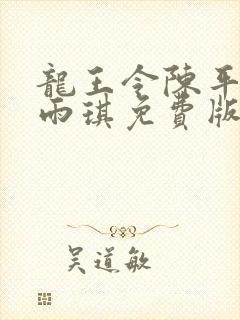 龍王令陳平
雨琪免費版
吳道敏